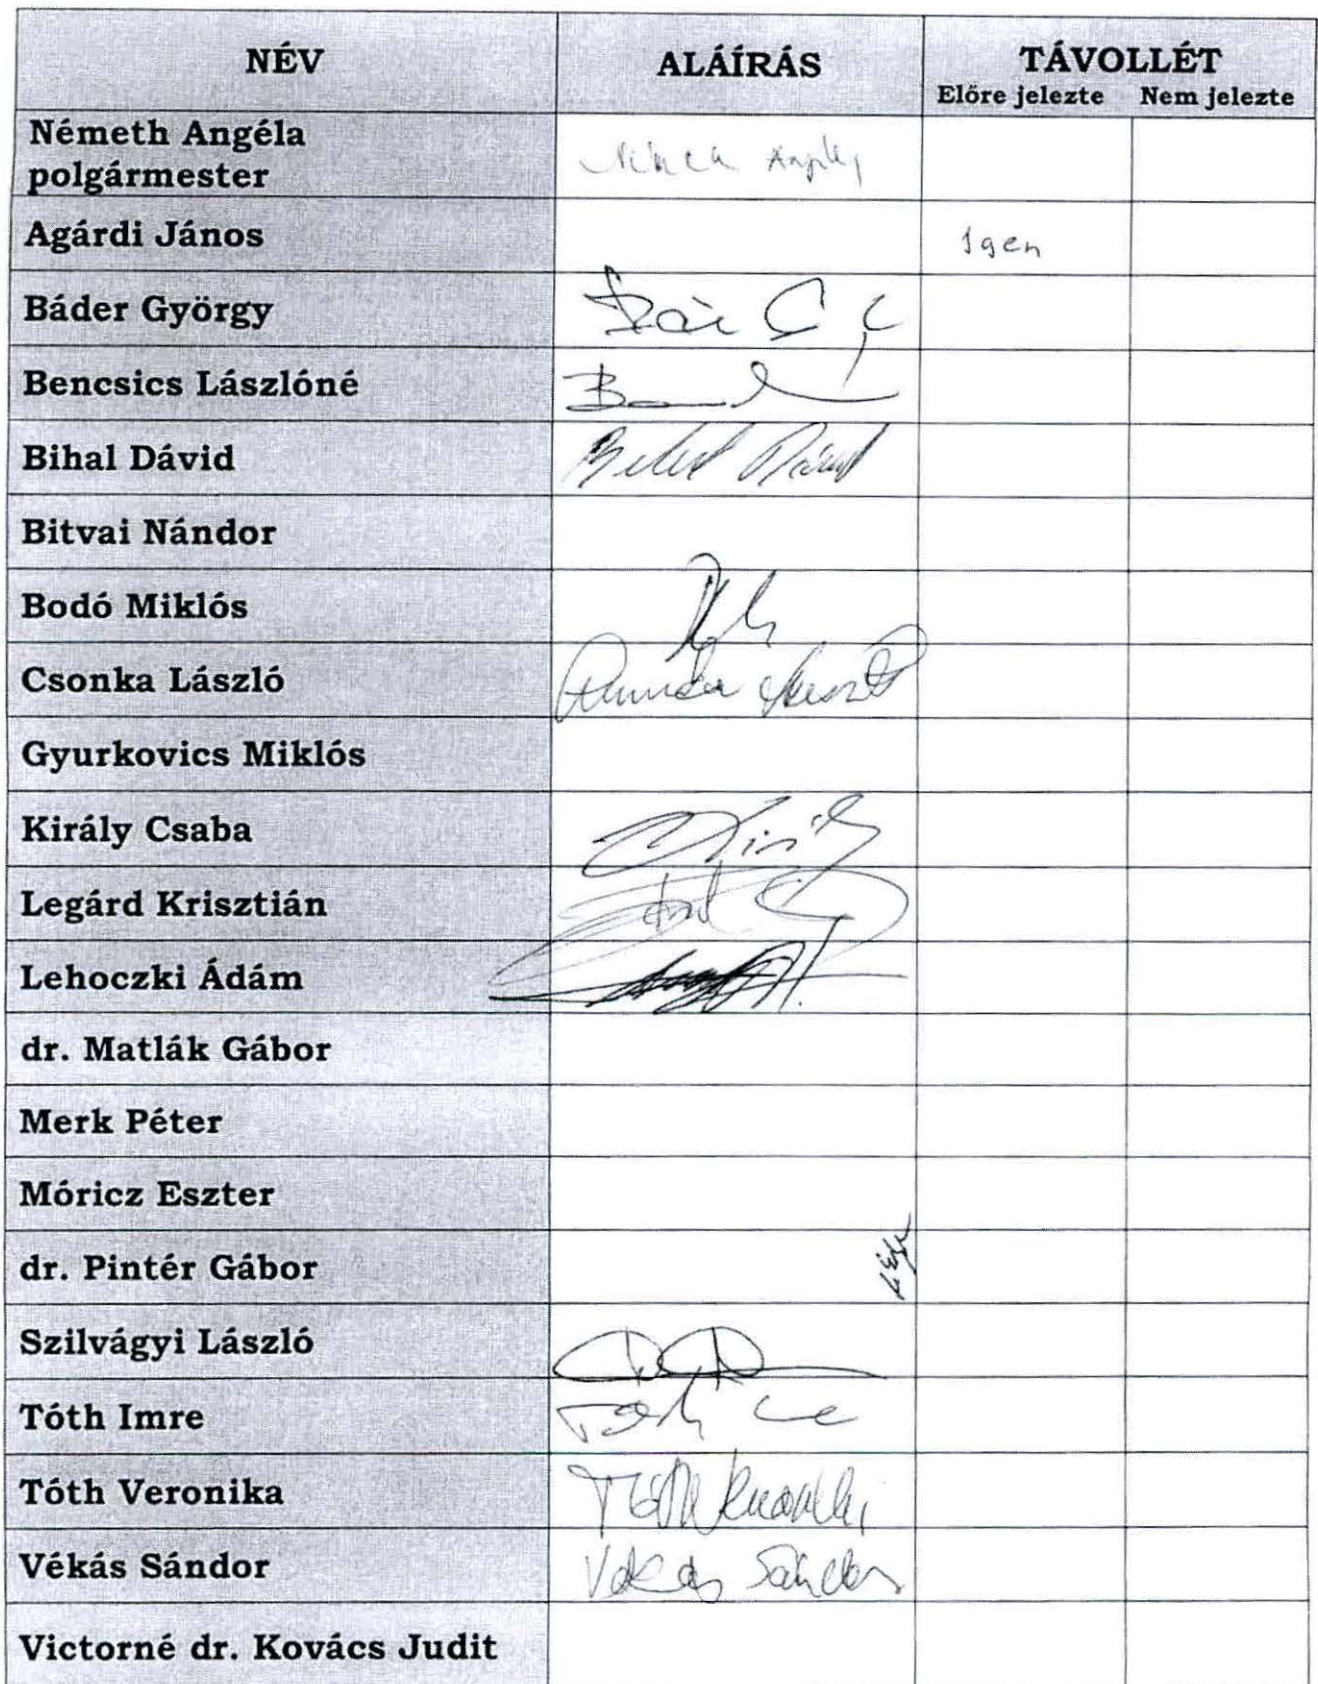 NÉV ALÁÍRÁS TÁVOLLÉT
Előre jelezte Nem jelezte
Németh Angéla
polgármester
Agárdi János Igen
Báder György
Bencsics Lászlóné
Bihal Dávid Bihal Dávid
Bitvai Nándor
Bodó Miklós
Csonka László
Gyurkovics Miklós
Király Csaba
Legárd Krisztián
Lehoczki Ádám
dr. Matlák Gábor
Merk Péter
Móricz Eszter
dr. Pintér Gábor
Szilvágyi László
Tóth Imre
Tóth Veronika Tóth Veronika
Vékás Sándor Vékás Sándor
Victorné dr. Kovács Judit